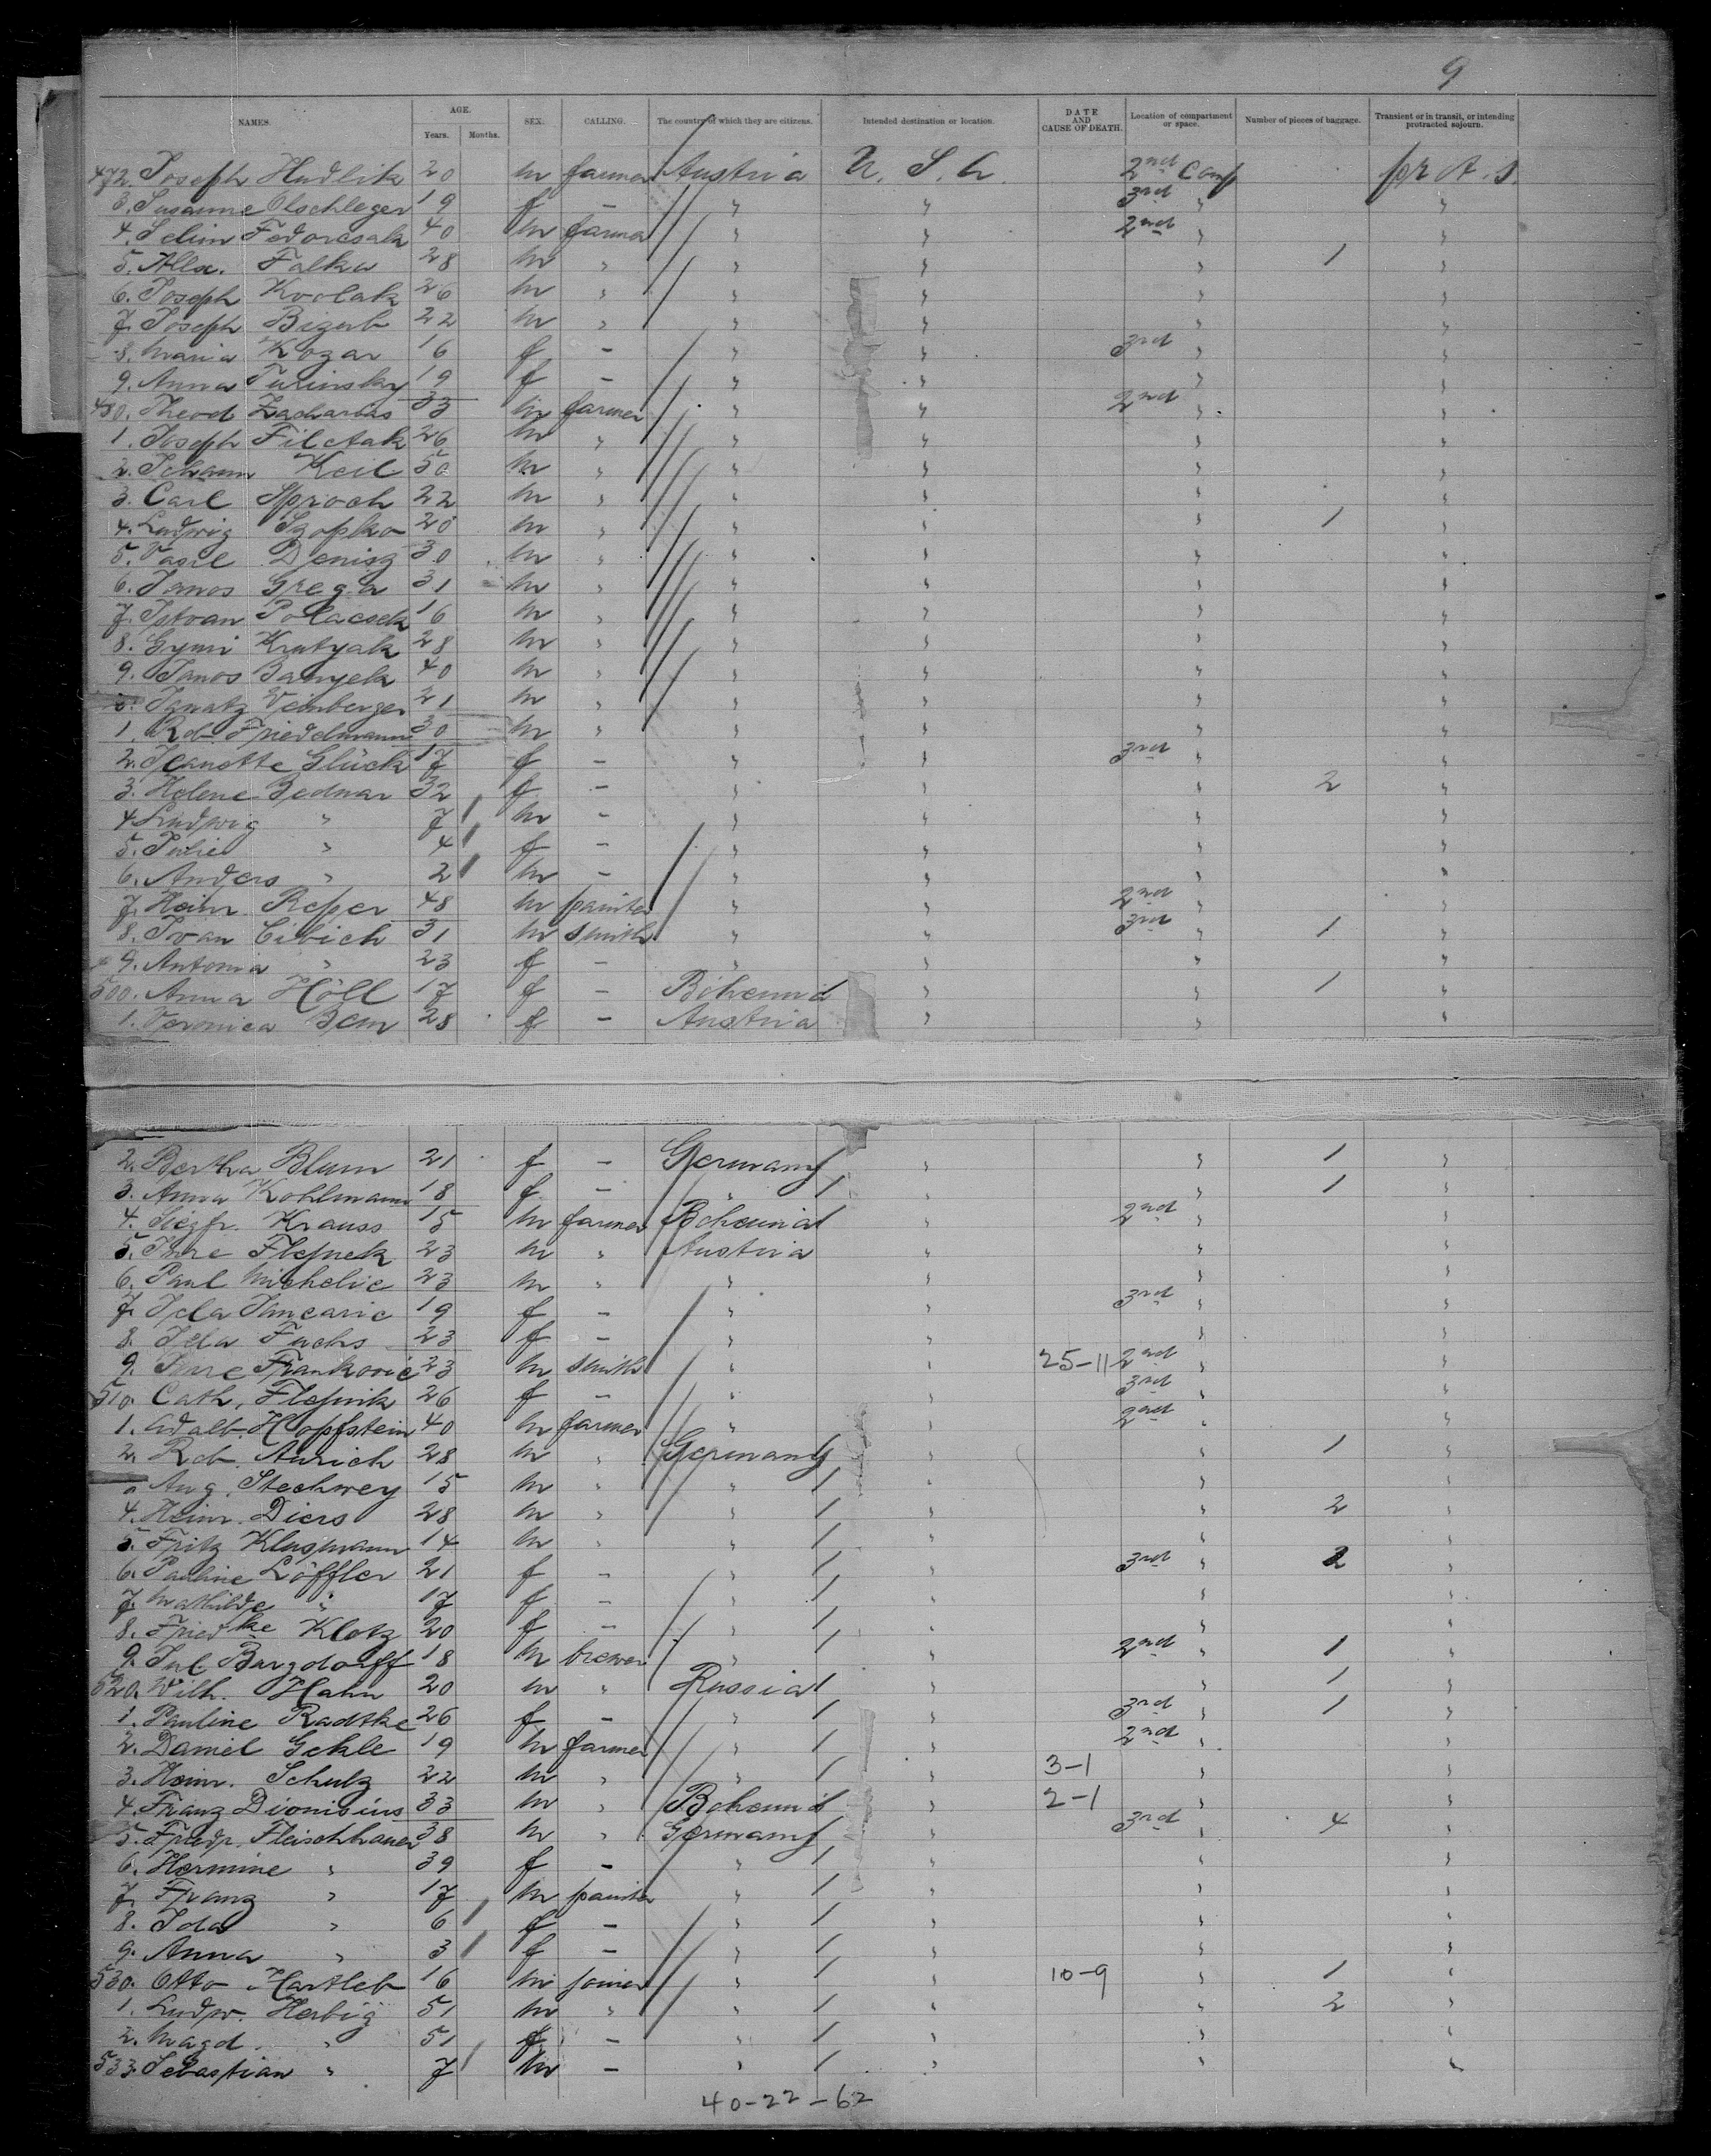 9
NAMES. AGE. Years. Months. SEX. CALLING. The country of which they are citizens. Intended destination or location. DATE AND CAUSE OF DEATH. Location of compartment or space. Number of pieces of baggage. Transient or in transit, or intending protracted sojourn.
472. Joseph Hudlik 20 m farmer Austria U. S. A. 2nd Comp pr A. S.
3. Susanne Olschleger 19 f – " " 3rd " "
4. Selim Fedorcsak 40 m farmer " " 2nd " "
5. Alex. Falka 28 m " " " " 1 "
6. Joseph Kvolak 26 m " " " " "
7. Joseph Bizub 22 m " " " " "
8. Maria Kozar 16 f – " " 3rd " "
9. Anna Turinsky 19 f – " " " "
480. Theod Zacharias 33 m farmer " " 2nd " "
1. Joseph Filetak 26 m " " " " "
2. Johann Keil 50 m " " " " "
3. Carl Sproch 22 m " " " " "
4. Ludwig Szopko 20 m " " " " 1 "
5. Vasil Denisz 30 m " " " " "
6. Janos Grega 31 m " " " " "
7. Istvan Polacsek 16 m " " " " "
8. Gyuri Krutyak 28 m " " " " "
9. Janos Banyek 40 m " " " " "
0. Ignatz Weinberger 21 m " " " " "
1. Rob. Friedelmann 30 m " " " " "
2. Jeanette Glück 17 f – " " 3rd " "
3. Helene Bednar 32 f – " " " 2 "
4. Ludwig " 7 m – " " " "
5. Julie " 4 f – " " " "
6. Anders " 2 m – " " " "
7. Heinr. Reper 48 m painter " " 2nd " "
8. Ivan Cibich 31 m smith " " 3rd " 1 "
9. Antonia " 23 f – " " " "
500. Anna Höll 17 f – Bohemia " " 1 "
1. Veronica Bem 28 f – Austria " " "
2. Bertha Blum 21 f – Germany " " 1 "
3. Anna Kohlmann 18 f – " " " 1 "
4. Siegfr. Krauss 15 m farmer Bohemia " 2nd " "
5. Imre Flepnek 23 m " Austria " " "
6. Paul Michelic 23 m " " " " "
7. Ida Jancaric 19 f – " " 3rd " "
8. Ida Fuchs 23 f – " " " "
9. Imre Frankovic 23 m smith " " 25-11 2nd " "
510. Cath. Flepnik 26 f – " " 3rd " "
1. Adalb. Hopfstein 40 m farmer " " 2nd " "
2. Rob. Aurich 28 m " Germany " " 1 "
Aug. Stechwey 15 m " " " " "
4. Heinr. Diers 28 m " " " " 2 "
5. Fritz Klugmann 14 m " " " " "
6. Pauline Löffler 21 f – " " 3rd " 2 "
7. Mathilde " 17 f – " " " "
8. Friedke Klotz 20 f – " " " "
9. Jul. Bargdorff 18 m brewer " " 2nd " 1 "
520. Wilh. Hahn 20 m " Russia " " 1 "
1. Pauline Radtke 26 f – " " 3rd " 1 "
2. Daniel Gekle 19 m farmer " " 2nd " "
3. Heinr. Schulz 22 m " " " 3-1 " "
4. Franz Dionisius 33 m " Bohemia " 2-1 " "
5. Friedr. Fleischhauer 38 m " Germany " 3rd " 4 "
6. Hermine " 39 f – " " " "
7. Franz " 17 m painter " " " "
8. Ida " 6 f – " " " "
9. Anna " 3 f – " " " "
530. Otto Hartleb 16 m joiner " " 10-9 " 1 "
1. Ludw. Herbig 51 m " " " " 2 "
2. Magd. " 51 f – " " " "
533. Sebastian " 7 m – " " " "
40-22-62